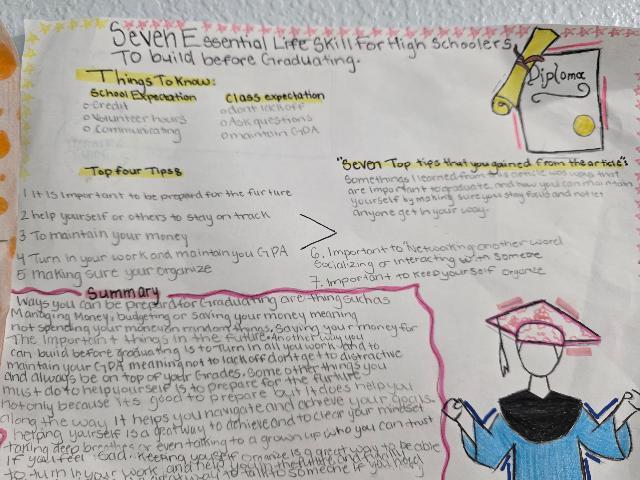 Seven Essential Life Skill for High Schoolers
To build before Graduating.
Things To Know:
School Expectation
Credit
Volunteer hours
Communicating
Class expectation
dont lack off
Ask questions
maintain GPA
Diploma
Top four Tips
1 It Is Important to be prepard for the furture
2 help yourself or others to stay on track
3 To maintain your money
4 Turn in your work and maintain you GPA
5 making sure your organize
"Seven Top tips that you gained from the article":
Somethings I learned from this article was ways that
are important to graduate, and how you can maintain
yourself by making sure you stay focus and not let
anyone get in your way.
6. Important to "Networking another word
Socializing or interacting with someone
7. Important to keep yourself organize
Summary
Ways you can be prepard for Graduating are things such as
Managing Money, budgeting or saving your money meaning
not spending your money on random things. Saying your money for
The important things in the future. Another way you
can build before graduating is to Turn in all you work and to
maintain your GPA meaning not to lack off dont get to distractive
and always be on top of your Grades. Some other things you
must do to help yourself is to prepare for the furture
not only because its good to prepare but it does help you
along the way. It helps you navigate and achieve your goals.
helping yourself is a great way to achieve and to clear your mindset
taking deep breathes or even talking to a grown up who you can trust
if you feel sad. Keeping yourself organize is a great way to be able
to turn in your work, and help you in the future and
great way to talk to someone if you need